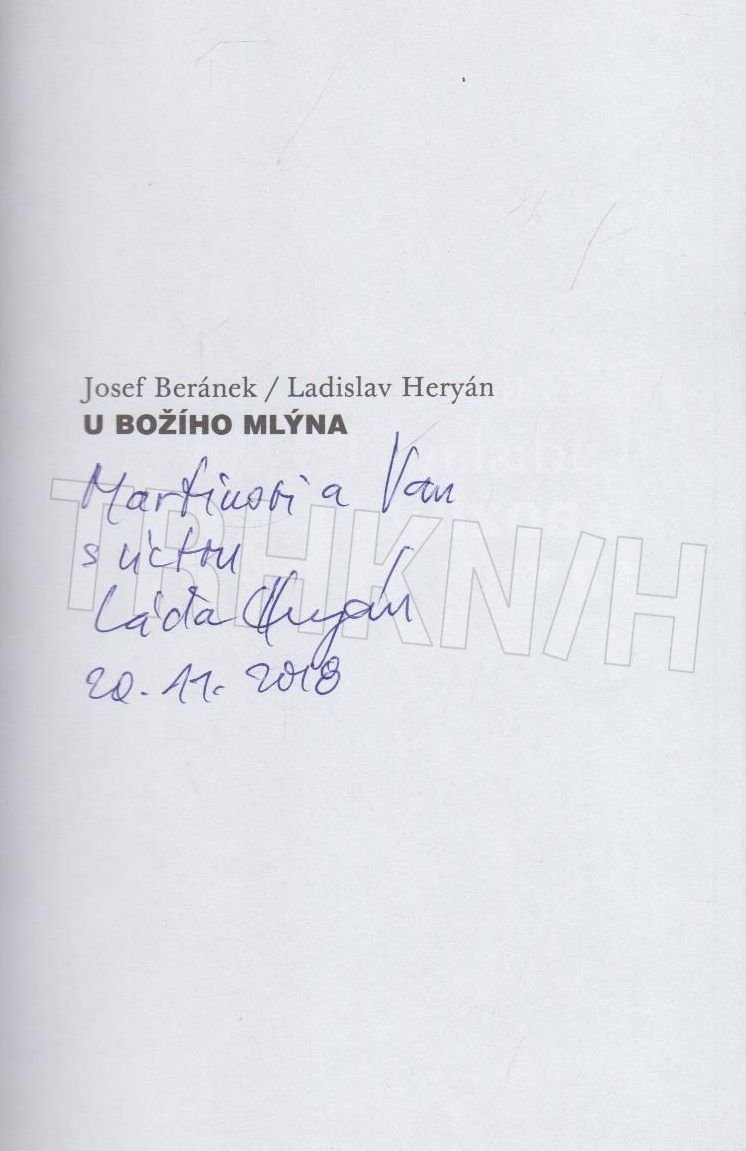 Josef Beránek / Ladislav Heryán
U BOŽÍHO MLÝNA
Martinovi a Van
s úctou
Láďa Heryán
20. 11. 2018
TRHKNIH